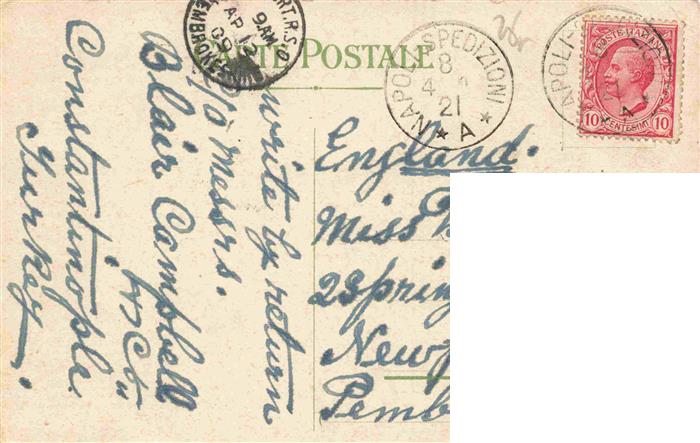 CARTE POSTALE
9 AM
AP 1
09
NAPOLI-SPEDIZIONI
8
4
21
★ A ★
POSTE ITALIANE
10 CENTESIMI 10
write by return
c/o Messrs.
Blair Campbell
& Co
Constantinople
Turkey.
England.
Miss
2 Spring
New
Pemb